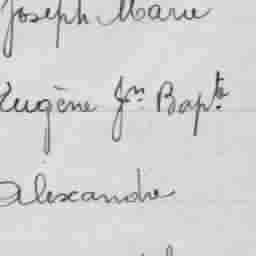 Joseph Marie
Eugène Jn Bapte
Alexandre